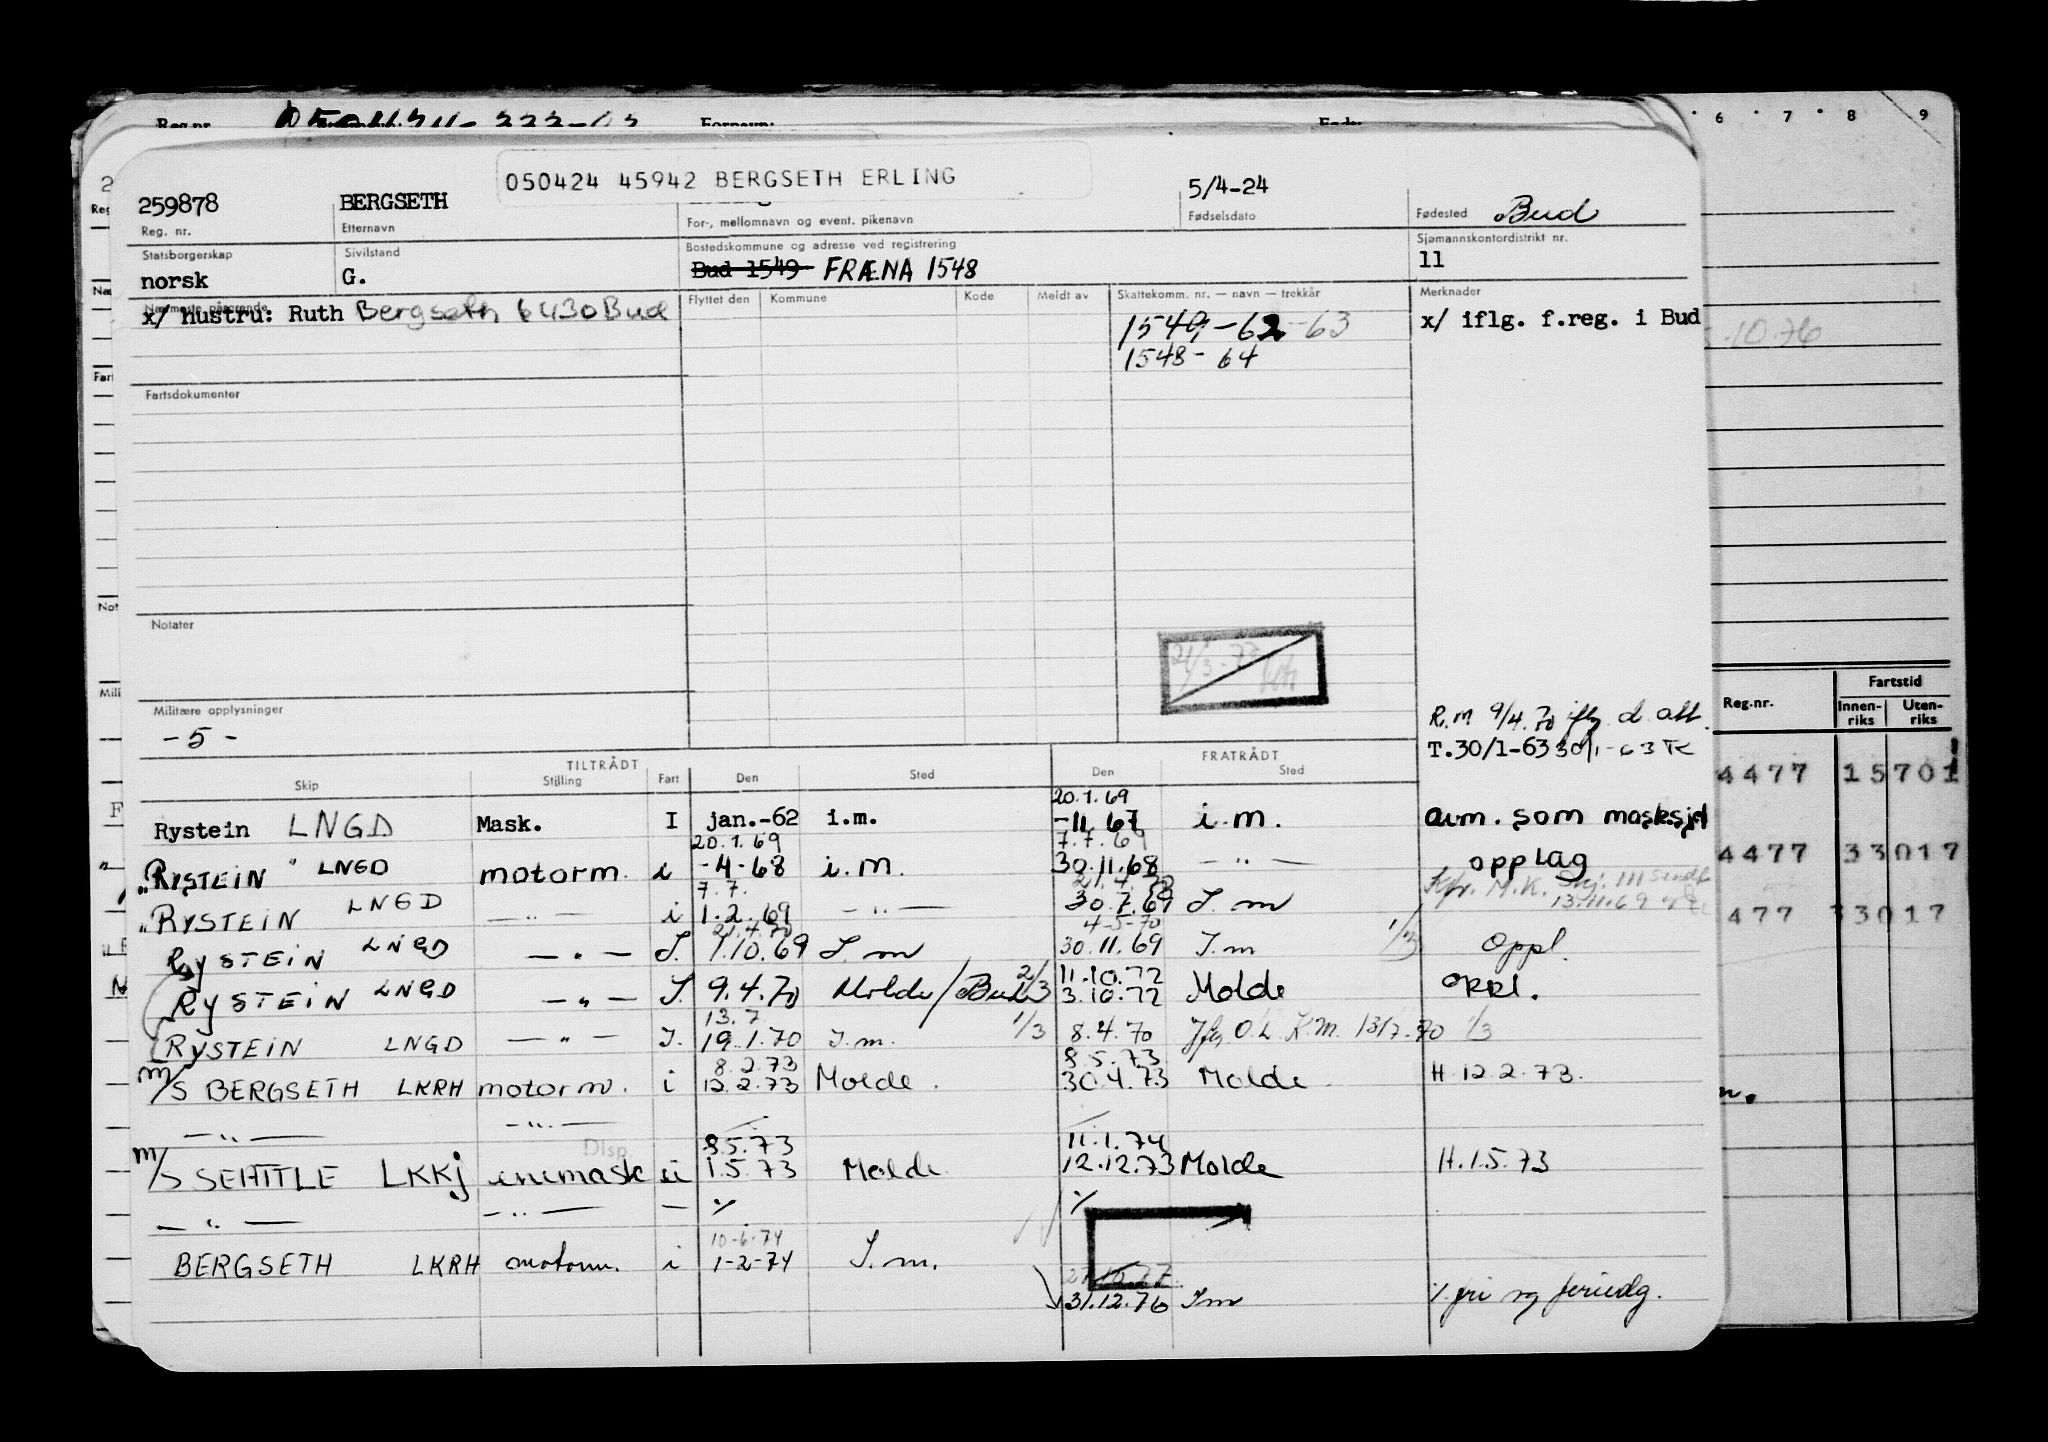 Reg.nr. Fornavn:
6 7 8 9
050424 45942 BERGSETH ERLING
259878 BERGSETH 5/4-24
Reg. nr. Etternavn For-, mellomnavn og event. pikenavn Fødselsdato Fødested Bud
Statsborgerskap Sivilstand Bostedskommune og adresse ved registrering Sjømannskontordistrikt nr.
norsk G. Bud 1549 FRÆNA 1548 11
Nærmeste pårørende Flyttet den Kommune Kode Meldt av Skattekomm. nr. — navn — trekkår Merknader
x/ Hustru: Ruth Bergseth 6430 Bud 1549-62-63 x/ iflg. f.reg. i Bud
.10.76
1548-64
Fartsdokumenter
Notater
21/3-73
Militære opplysninger
-5-
R.M 9/4.70 iflg. d. att.
T.30/1-63 30/1-63
Reg.nr. Fartstid
Innenriks Utenriks
TILTRÅDT FRATRÅDT
Skip Stilling Fart Den Sted Den Sted
4477 15701
20.1.69
Rystein LNGD Mask. I jan.-62 i.m. -11.67 i.m. avm. som masksjef
20.1.69 7.7.69
"RYSTEIN" LNGD motorm. i -4-68 i.m. 30.11.68 — " — opplag
4477 33017
7.7. 21.4.70
"RYSTEIN LNGD — " — i 1.2.69 — " — 30.7.69 I.m
13.11.69
477 33017
21.4.70 4-5-70
RYSTEIN LNGD — " — I. 1.10.69 I.m 30.11.69 I.m 1/3 oppl.
2/3 11.10.72
RYSTEIN LNGD — " — I. 9.4.70 Molde/Bud 3.10.72 Molde oppl.
13.7 1/3
RYSTEIN LNGD — " — I. 19.1.70 I.m. 8.4.70 Jfr. O.L. K.M. 13/7-70 1/3
8.2.73 8.5.73
M/S BERGSETH LKRH motorm. i 12.2.73 Molde. 30.4.73 Molde H 12.2.73.
— " — — " —
Disp. 8.5.73 11.1.74
M/S SEATTLE LKKJ enemask ii 1.5.73 Molde 12.12.73 Molde H.1.5.73
— " — — " — —
10-6-74
BERGSETH LKRH motorm. i 1-2-74 I.m.
31.12.76 I.m ÷ fri og feriedg.